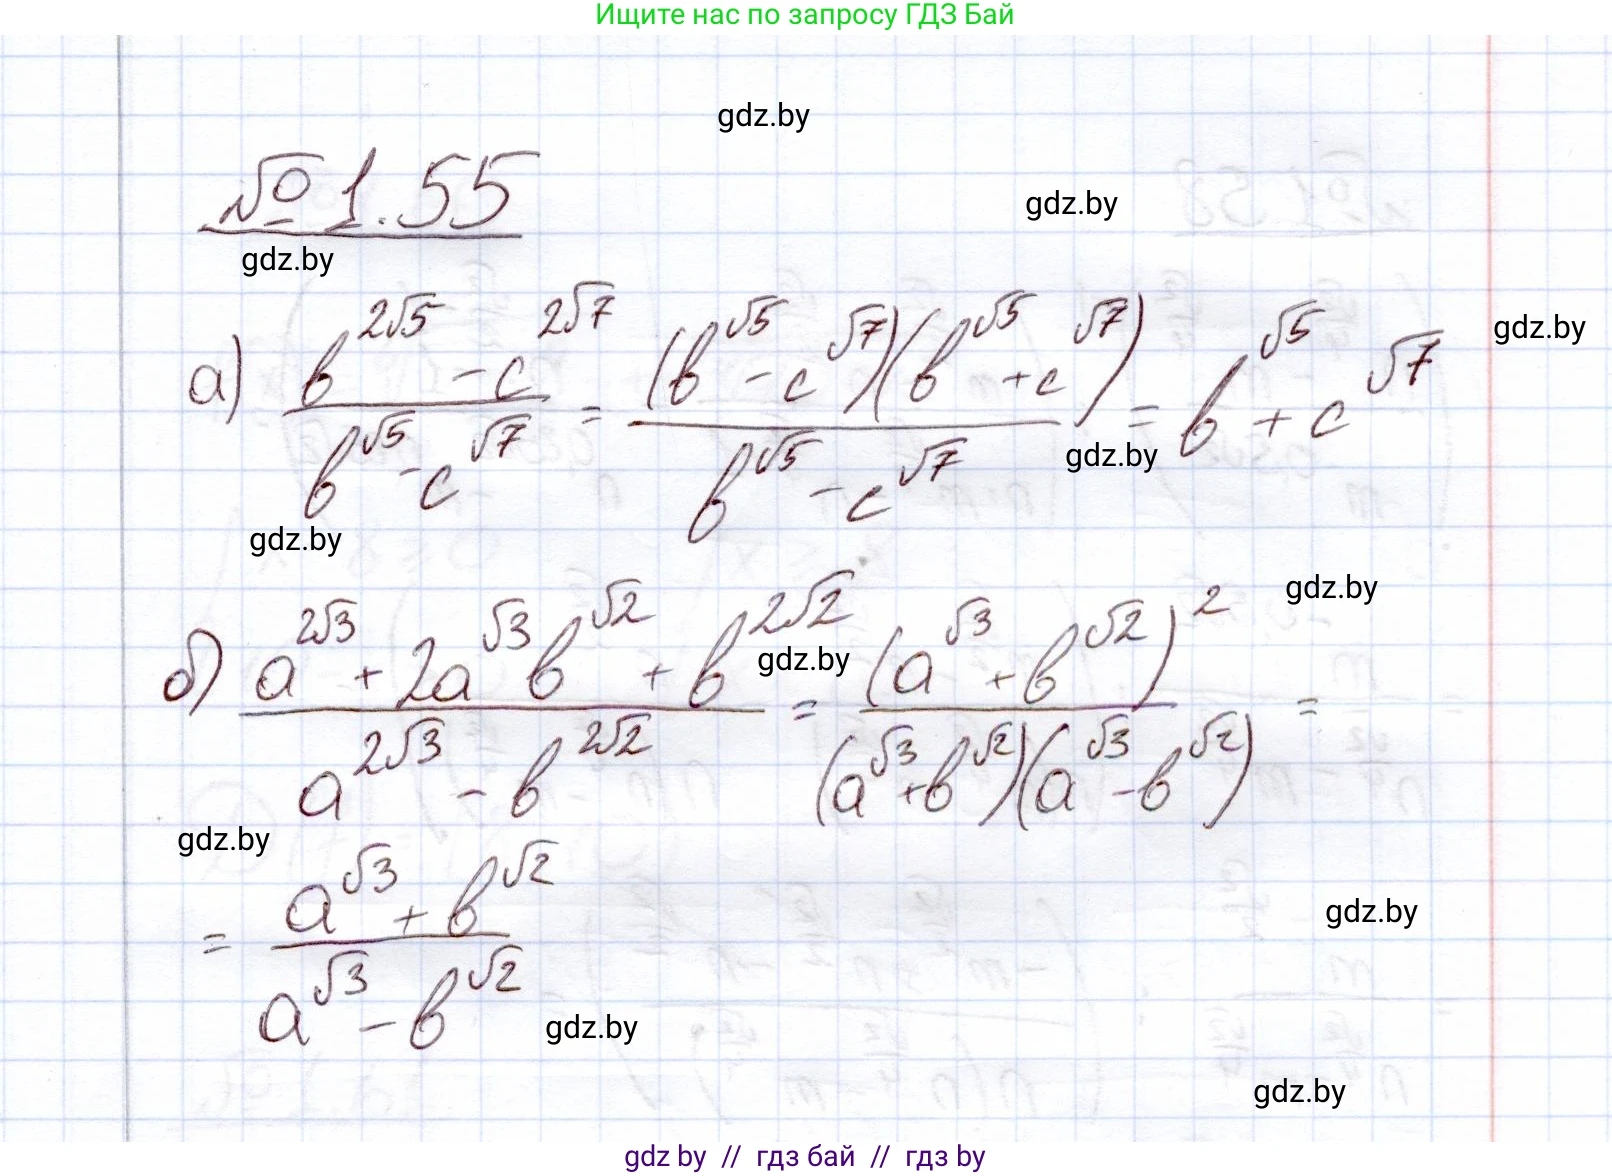 Ищите нас по запросу ГДЗ Бай
gdz.by
№ 1.55
gdz.by
gdz.by
а) (b^(2√5) - c^(2√7))/(b^(√5) - c^(√7)) = ((b^(√5) - c^(√7))(b^(√5) + c^(√7)))/(b^(√5) - c^(√7)) = b^(√5) + c^(√7)
gdz.by
gdz.by
gdz.by
gdz.by
б) (a^(2√3) + 2a^(√3)b^(√2) + b^(2√2))/(a^(2√3) - b^(2√2)) = (a^(√3) + b^(√2))^2/((a^(√3) + b^(√2))(a^(√3) - b^(√2))) =
gdz.by
gdz.by
= (a^(√3) + b^(√2))/(a^(√3) - b^(√2))
gdz.by
gdz.by
gdz.by
gdz by // гдз бай // гдз by